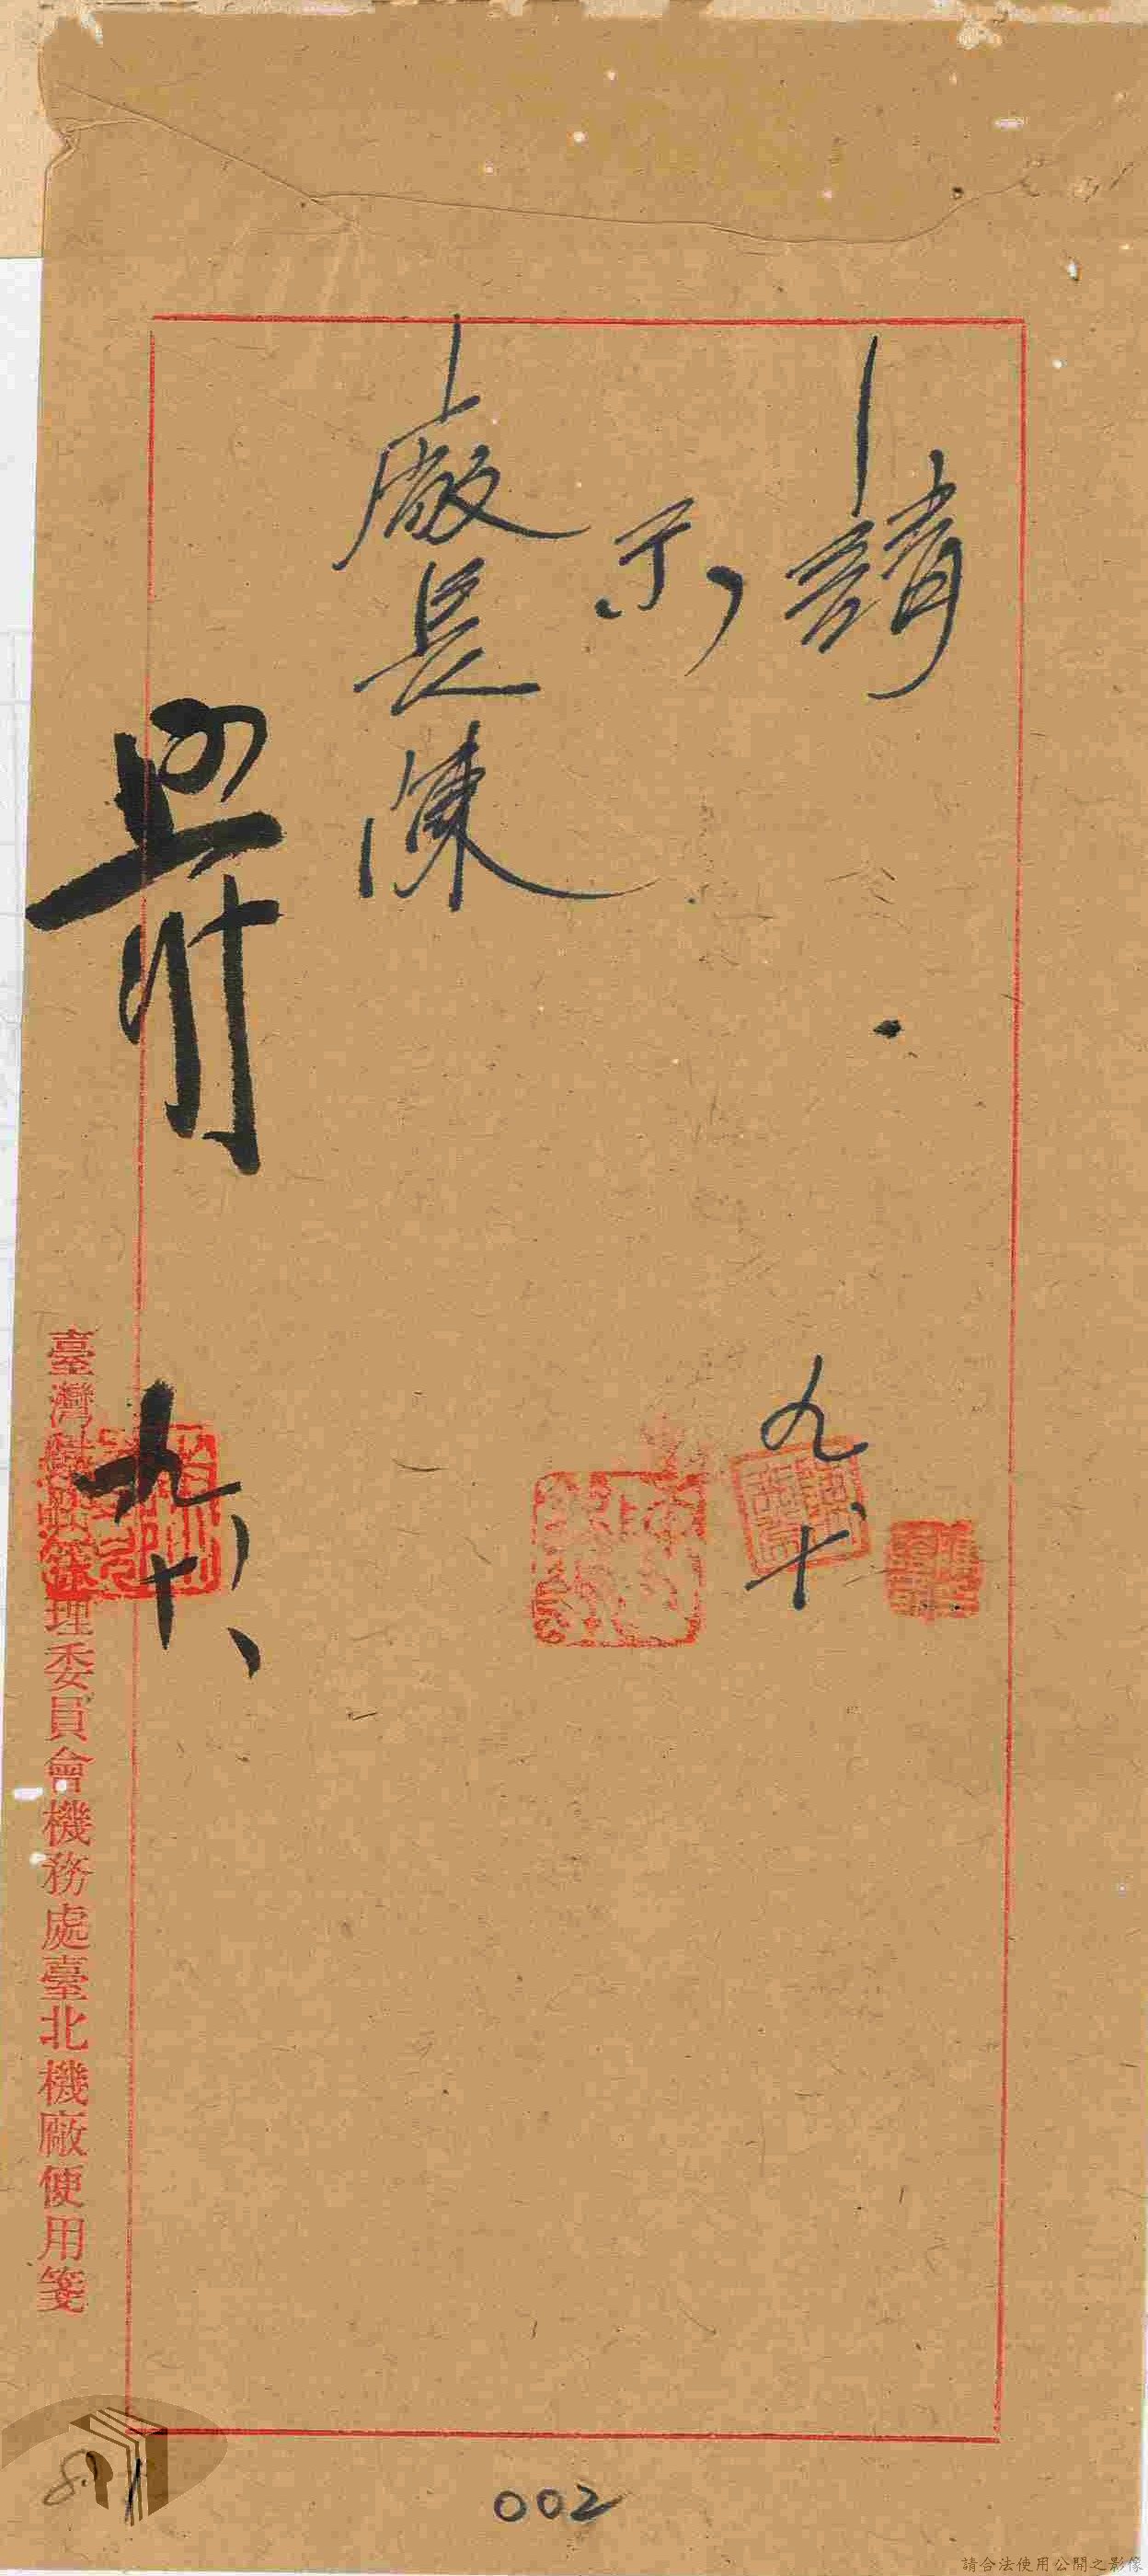 請
示
廠長陳
九、十
九、十八
臺灣鐵路管理委員會機務處臺北機廠便用箋
002
請合法使用公開之影像